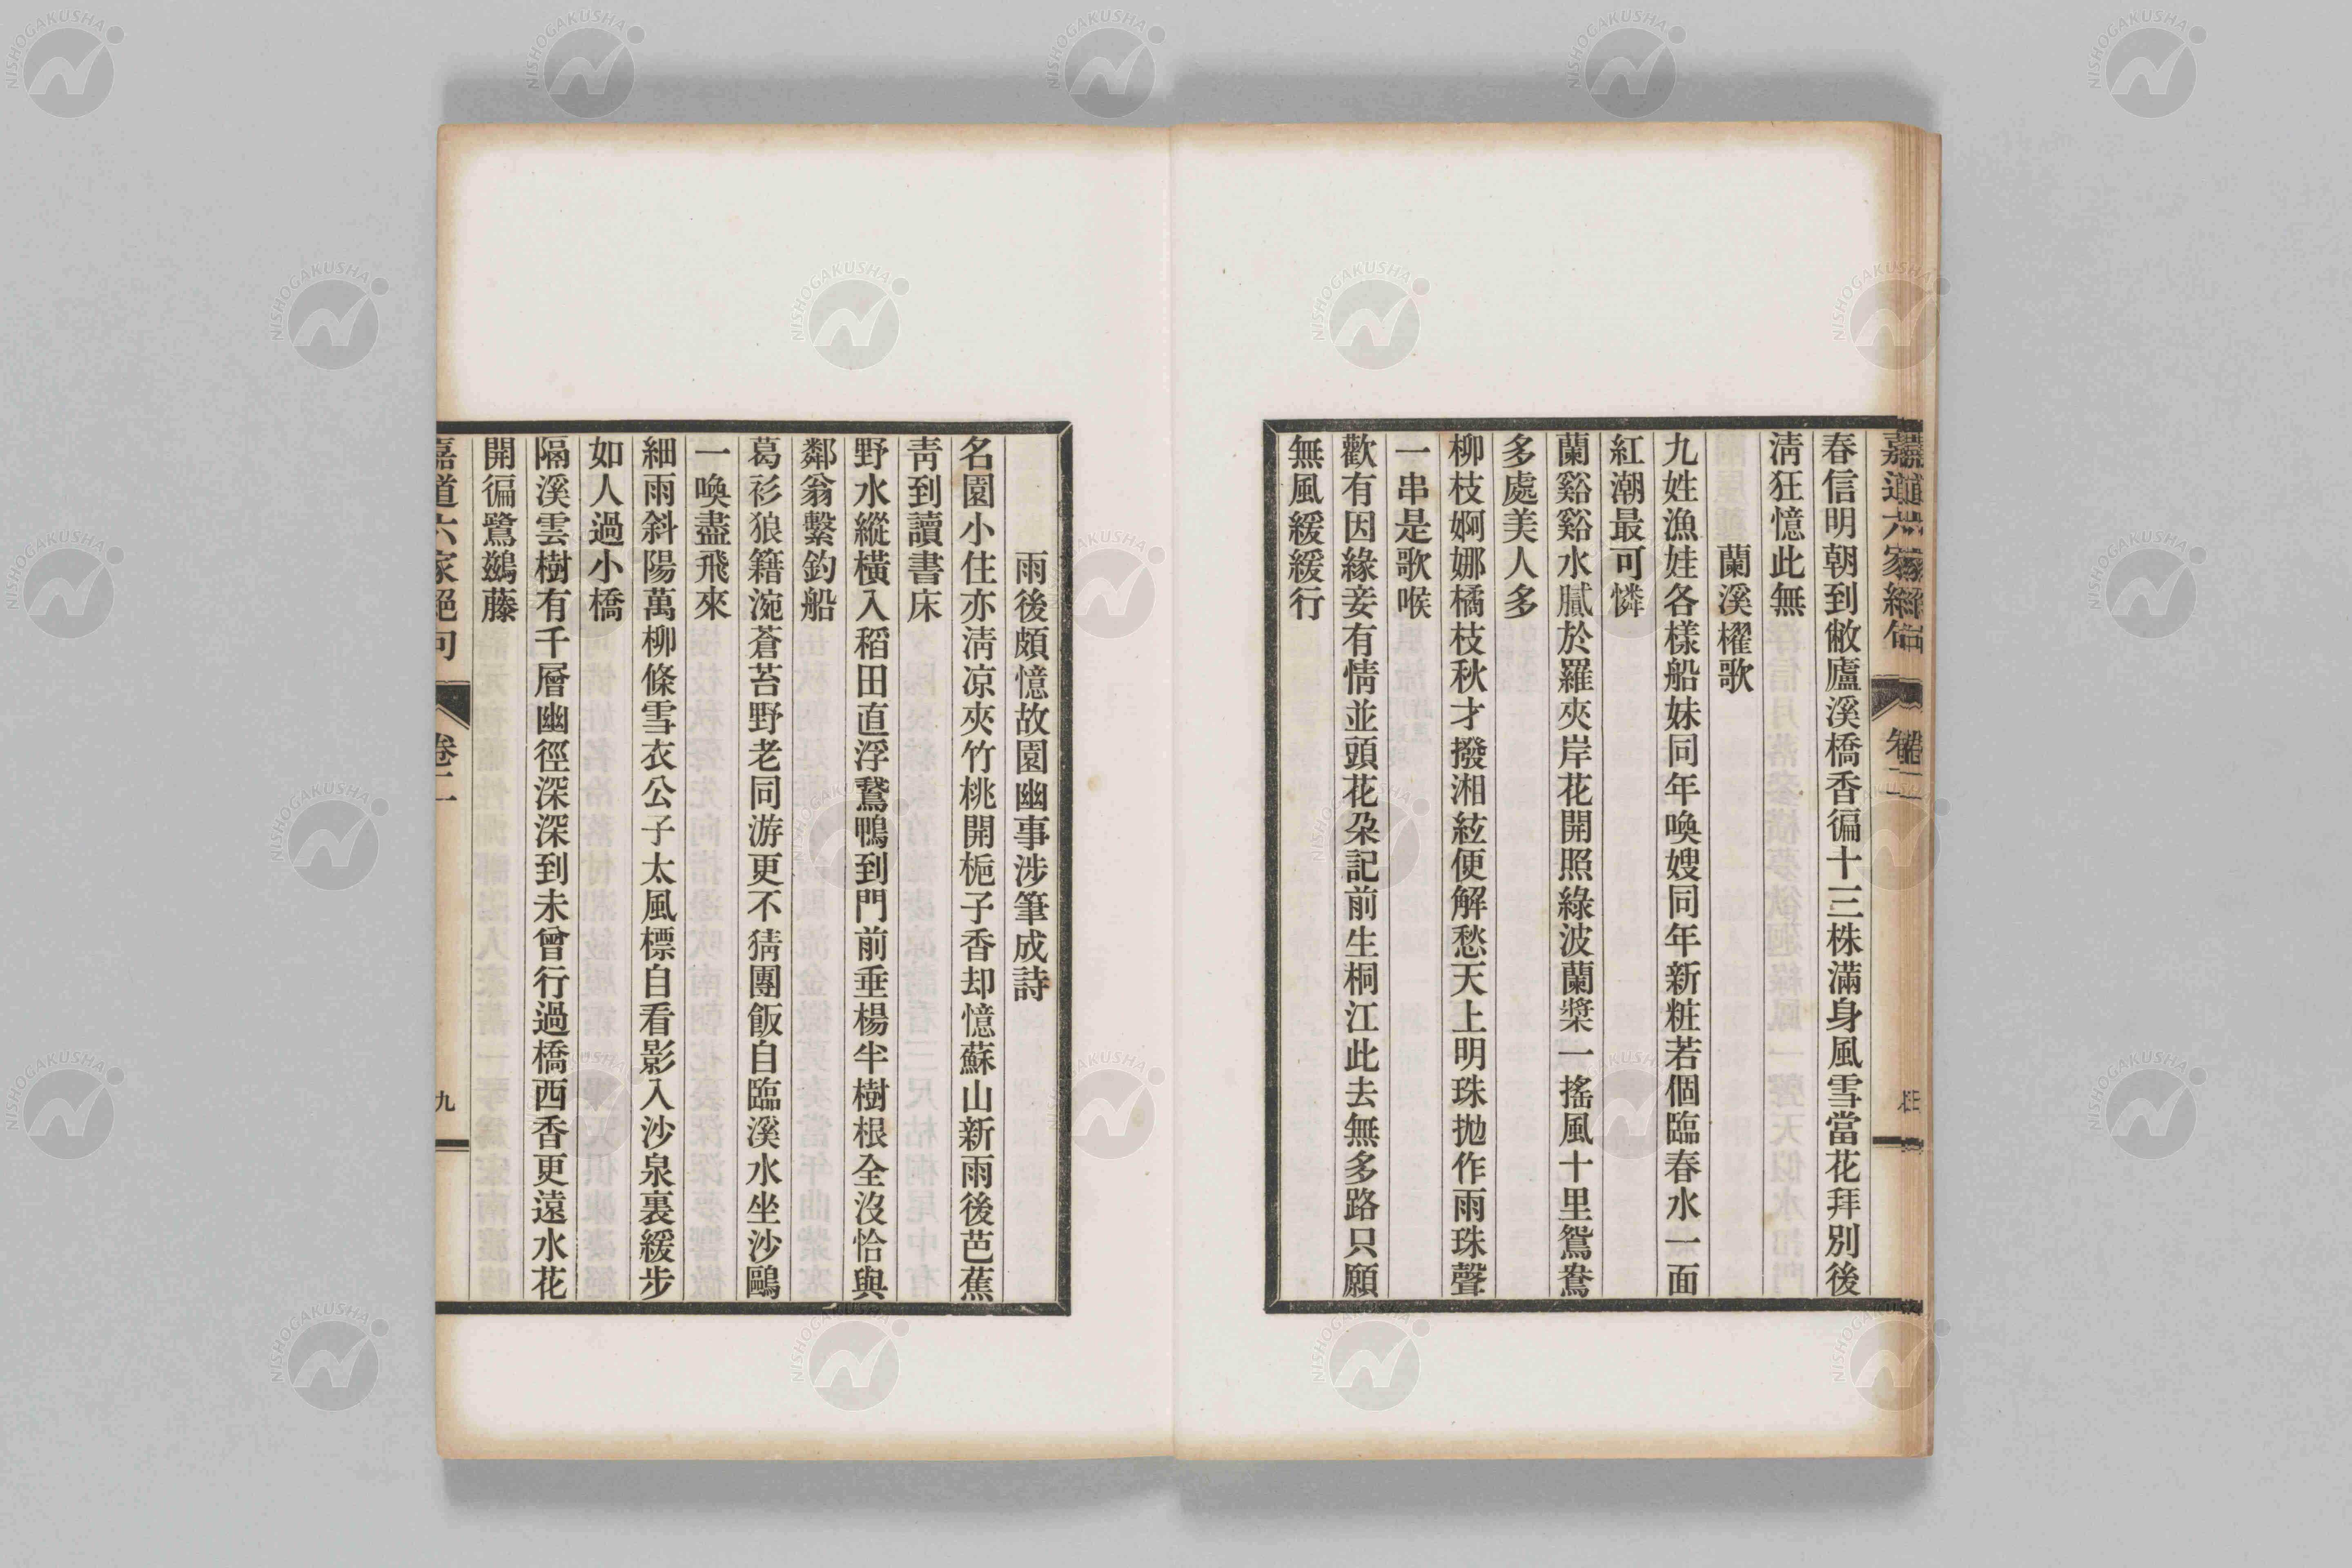 嘉道六家絕句
卷二
春信明朝到敝廬溪橋香徧十三株滿身風雪當花拜別後
淸狂憶此無
蘭溪櫂歌
九姓漁娃各樣船妹同年喚嫂同年新粧若個臨春水一面
紅潮最可憐
蘭谿谿水膩於羅夾岸花開照綠波蘭槳一搖風十里鴛鴦
多處美人多
柳枝婀娜橘枝秋才撥湘絃便解愁天上明珠拋作雨珠聲
一串是歌喉
歡有因緣妾有情並頭花朶記前生桐江此去無多路只願
無風緩緩行
雨後頗憶故園幽事涉筆成詩
名園小住亦淸凉夾竹桃開梔子香却憶蘇山新雨後芭蕉
靑到讀書床
野水縱橫入稻田直浮鵞鴨到門前垂楊半樹根全沒恰與
鄰翁繫釣船
葛衫狼籍涴蒼苔野老同游更不猜團飯自臨溪水坐沙鷗
一喚盡飛來
細雨斜陽萬柳條雪衣公子太風標自看影入沙泉裏緩步
如人過小橋
隔溪雲樹有千層幽徑深深到未曾行過橋西香更遠水花
開徧鷺鷀藤
嘉道六家絕句
卷二
九
NISHOGAKUSHA